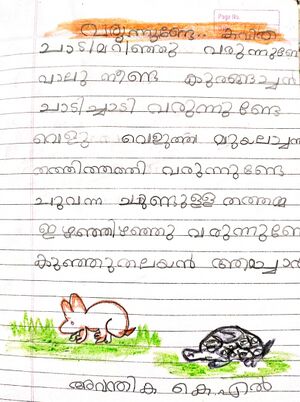 വരുന്നുണ്ടേ.. കവിത
Page No.
ചാടിമറിഞ്ഞു വരുന്നുണ്ടേ
വാലു നീണ്ട കുരങ്ങച്ചൻ
ചാടിച്ചാടി വരുന്നുണ്ടേ
വെളു വെളുത്ത മുയലച്ചൻ
തത്തിത്തത്തി വരുന്നുണ്ടേ
ചുവന്ന ചുണ്ടുള്ള തത്തമ്മ
ഇഴഞ്ഞിഴഞ്ഞു വരുന്നുണ്ടേ
കുഞ്ഞുതലയൻ ആമച്ചാർ
അവന്തിക കെ.എൽ